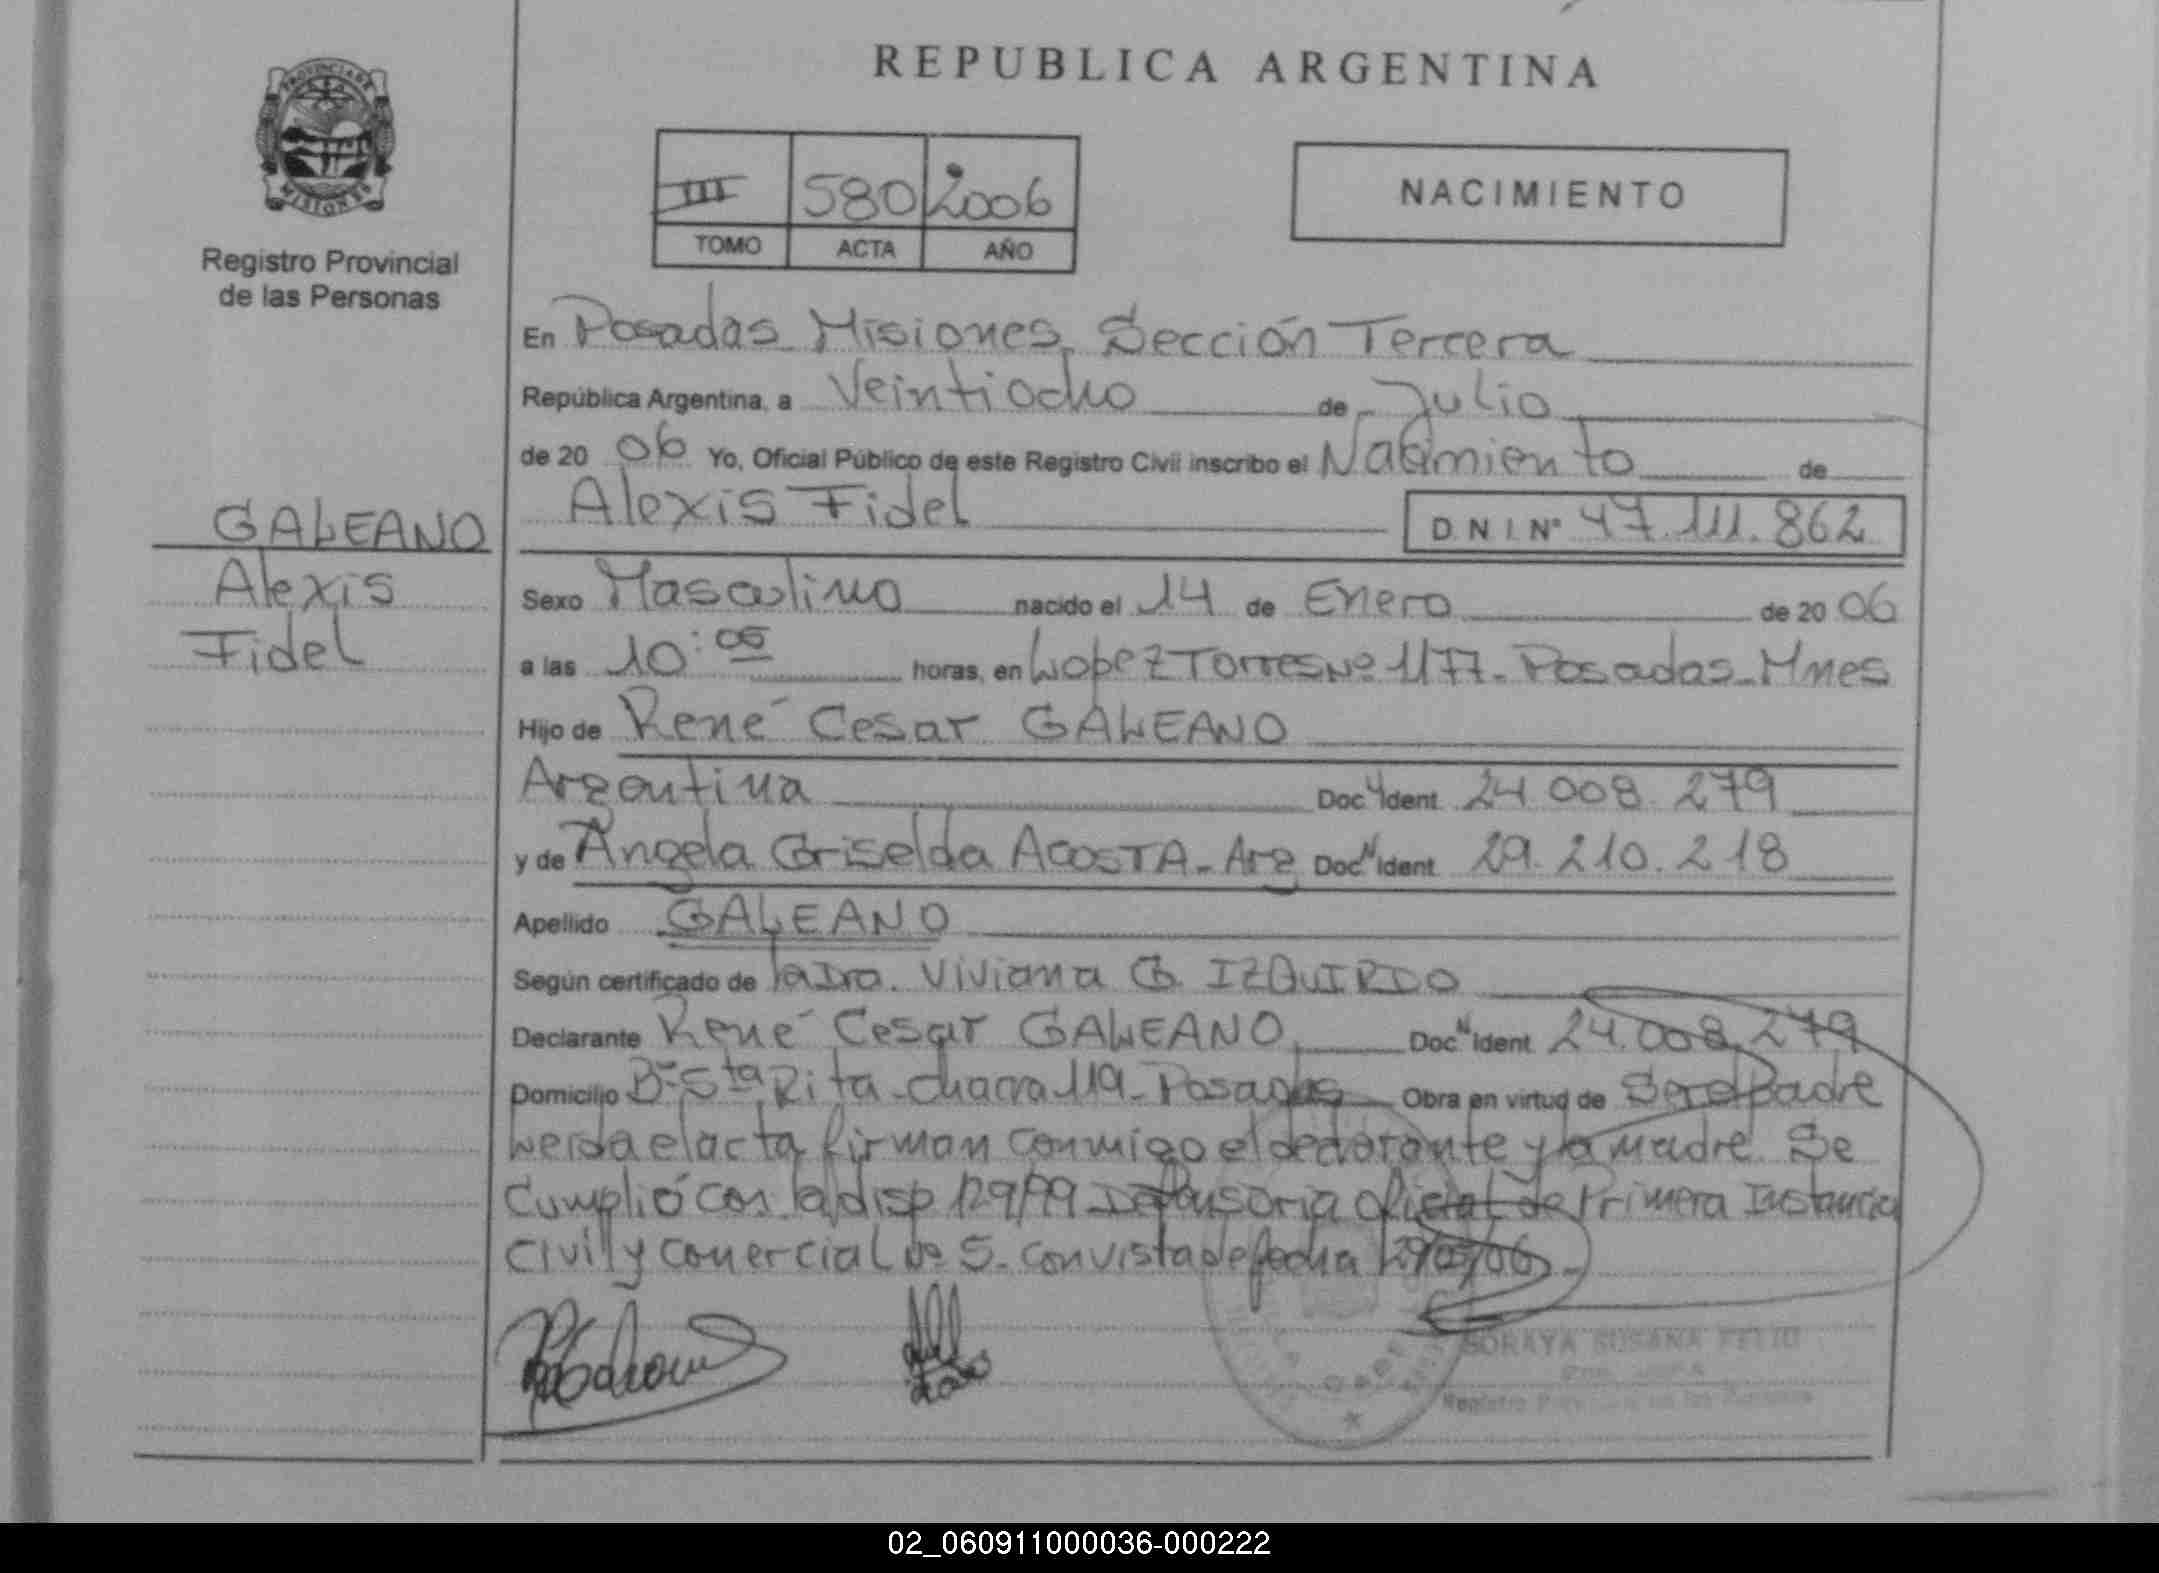 REPUBLICA ARGENTINA
PROVINCIA DE
MISIONES
Registro Provincial
de las Personas
III 580 2006
TOMO ACTA AÑO
NACIMIENTO
En Posadas Misiones, Sección Tercera
República Argentina, a Veintiocho de Julio
de 20 06 Yo, Oficial Público de este Registro Civil inscribo el Nacimiento de
Alexis Fidel D.N.I. Nº 47.111.862
GALEANO
Alexis
Fidel
Sexo Masculino nacido el 14 de Enero de 20 06
a las 10:05 horas, en Lopez Torres Nº 1177 - Posadas - Mnes
Hijo de René Cesar GALEANO
Argentina Doc Ident 24.008.279
y de Angela Griselda ACOSTA - Arg Doc N Ident 29.210.218
Apellido GALEANO
Según certificado de la Dra. Viviana G. IZQUIRDO
Declarante René Cesar GALEANO Doc N Ident 24.008.279
Domicilio Bº Sta Rita - Chacra 119 - Posadas Obra en virtud de Ser el Padre
Leida el acta firman conmigo el declarante y la madre. Se
Cumplió con la disp 129/99 Defensoria Oficial de Primera Instancia
Civil y Comercial Nº 5. con vista de fecha
SORAYA SUSANA
Registro de las Personas
02_060911000036-000222